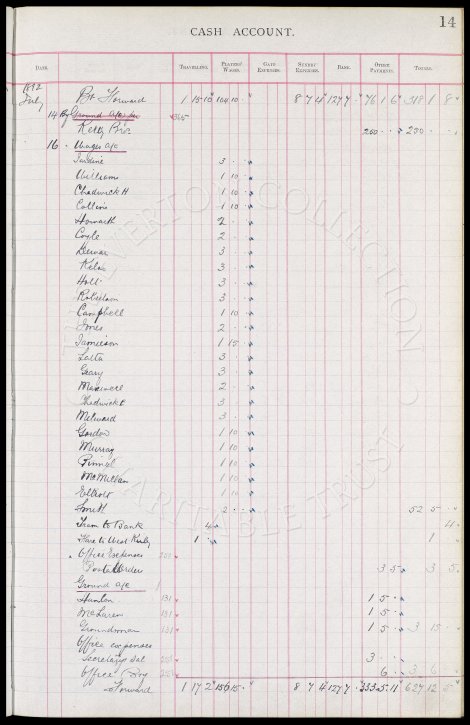 14
CASH ACCOUNT.
DATE. TRAVELLING. PLAYERS' WAGES. GATE EXPENSES. SUNDRY EXPENSES. BANK. OTHER PAYMENTS. TOTALS.
1892
July Bt Forward 1 15 10 104 10 8 7 4 127 7 76 1 6 318 1 8
14 By Ground a/c
Kelly Bros 200 200
16 Wages a/c
Jardine 3
Williams 1 10
Chadwick A 1 10
Collins 1 10
Howarth 2
Coyle 2
Dewar 3
Kelso 3
Holt 3
Robertson 3
Campbell 1 10
Jones 2
Jamieson 1 15
Latta 3
Geary 3
Maxwell 2
Chadwick E 3
Milward 3
Gordon 1 10
Murray 1 10
Pinnell 1 10
McMillan 1 10
Elliott 1 10
Smith 2 52 5
Tram to Bank 4 4
Fare to West Kirby 1 1
Office Expenses
Postal Order 3 5 3 5
Ground a/c
Hunter 131 1 5
McLaren 131 1 5
Groundsman 131 1 5 3 15
Office expenses
Secretary Sal 3
Office Boy 6 3 6
Forward 1 17 2 156 15 8 7 4 127 7 333 5 11 627 12 5
EVERTON COLLECTION
CHARITABLE TRUST